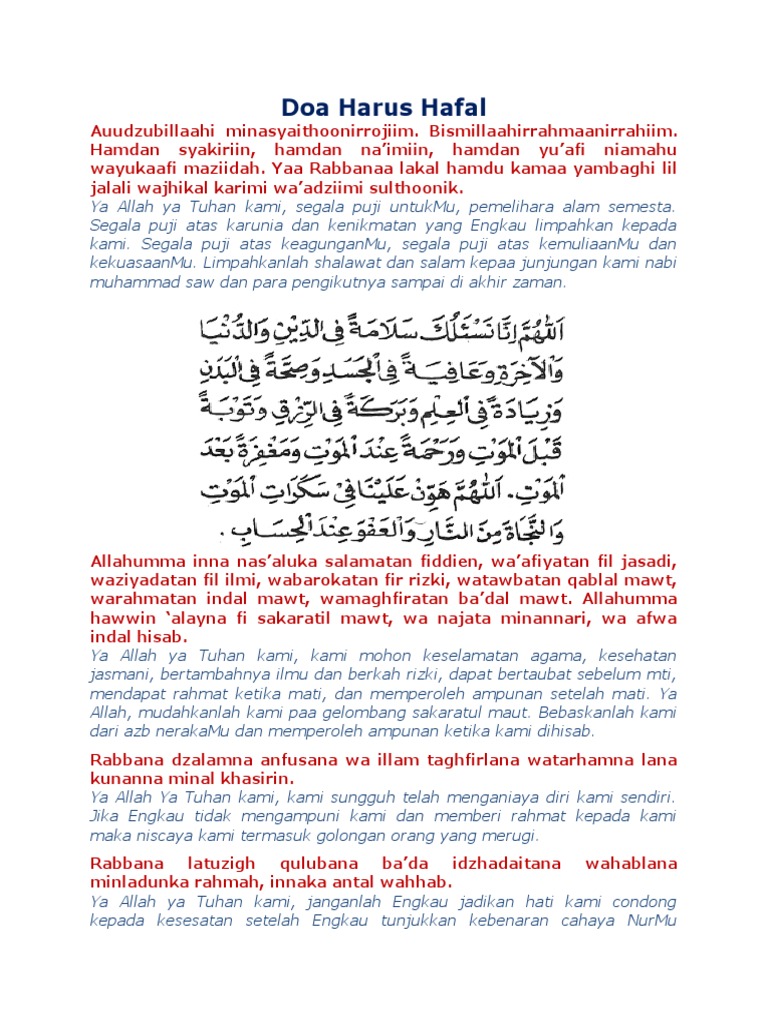 Doa Harus Hafal
Auudzubillaahi minasyaithoonirrojiim. Bismillaahirrahmaanirrahiim.
Hamdan syakiriin, hamdan na’imiin, hamdan yu’afi niamahu
wayukaafi maziidah. Yaa Rabbanaa lakal hamdu kamaa yambaghi lil
jalali wajhikal karimi wa’adziimi sulthoonik.
Ya Allah ya Tuhan kami, segala puji untukMu, pemelihara alam semesta.
Segala puji atas karunia dan kenikmatan yang Engkau limpahkan kepada
kami. Segala puji atas keagunganMu, segala puji atas kemuliaanMu dan
kekuasaanMu. Limpahkanlah shalawat dan salam kepaa junjungan kami nabi
muhammad saw dan para pengikutnya sampai di akhir zaman.
اَللّٰهُمَّ اِنَّا نَسْئَلُكَ سَلَامَةً فِى الدِّيْنِ وَالدُّنْيَا
وَالْاٰخِرَةِ وَعَافِيَةً فِى الْجَسَدِ وَصِحَّةً فِى الْبَدَنِ
وَزِيَادَةً فِى الْعِلْمِ وَبَرَكَةً فِى الرِّزْقِ وَتَوْبَةً
قَبْلَ الْمَوْتِ وَرَحْمَةً عِنْدَ الْمَوْتِ وَمَغْفِرَةً بَعْدَ
الْمَوْتِ. اَللّٰهُمَّ هَوِّنْ عَلَيْنَا فِيْ سَكَرَاتِ الْمَوْتِ
وَالنَّجَاةَ مِنَ النَّارِ وَالْعَفْوَ عِنْدَ الْحِسَابِ.
Allahumma inna nas’aluka salamatan fiddien, wa’afiyatan fil jasadi,
waziyadatan fil ilmi, wabarokatan fir rizki, watawbatan qablal mawt,
warahmatan indal mawt, wamaghfiratan ba’dal mawt. Allahumma
hawwin `alayna fi sakaratil mawt, wa najata minannari, wa afwa
indal hisab.
Ya Allah ya Tuhan kami, kami mohon keselamatan agama, kesehatan
jasmani, bertambahnya ilmu dan berkah rizki, dapat bertaubat sebelum mti,
mendapat rahmat ketika mati, dan memperoleh ampunan setelah mati. Ya
Allah, mudahkanlah kami paa gelombang sakaratul maut. Bebaskanlah kami
dari azb nerakaMu dan memperoleh ampunan ketika kami dihisab.
Rabbana dzalamna anfusana wa illam taghfirlana watarhamna lana
kunanna minal khasirin.
Ya Allah Ya Tuhan kami, kami sungguh telah menganiaya diri kami sendiri.
Jika Engkau tidak mengampuni kami dan memberi rahmat kepada kami
maka niscaya kami termasuk golongan orang yang merugi.
Rabbana latuzigh qulubana ba’da idzhadaitana wahablana
minladunka rahmah, innaka antal wahhab.
Ya Allah ya Tuhan kami, janganlah Engkau jadikan hati kami condong
kepada kesesatan setelah Engkau tunjukkan kebenaran cahaya NurMu